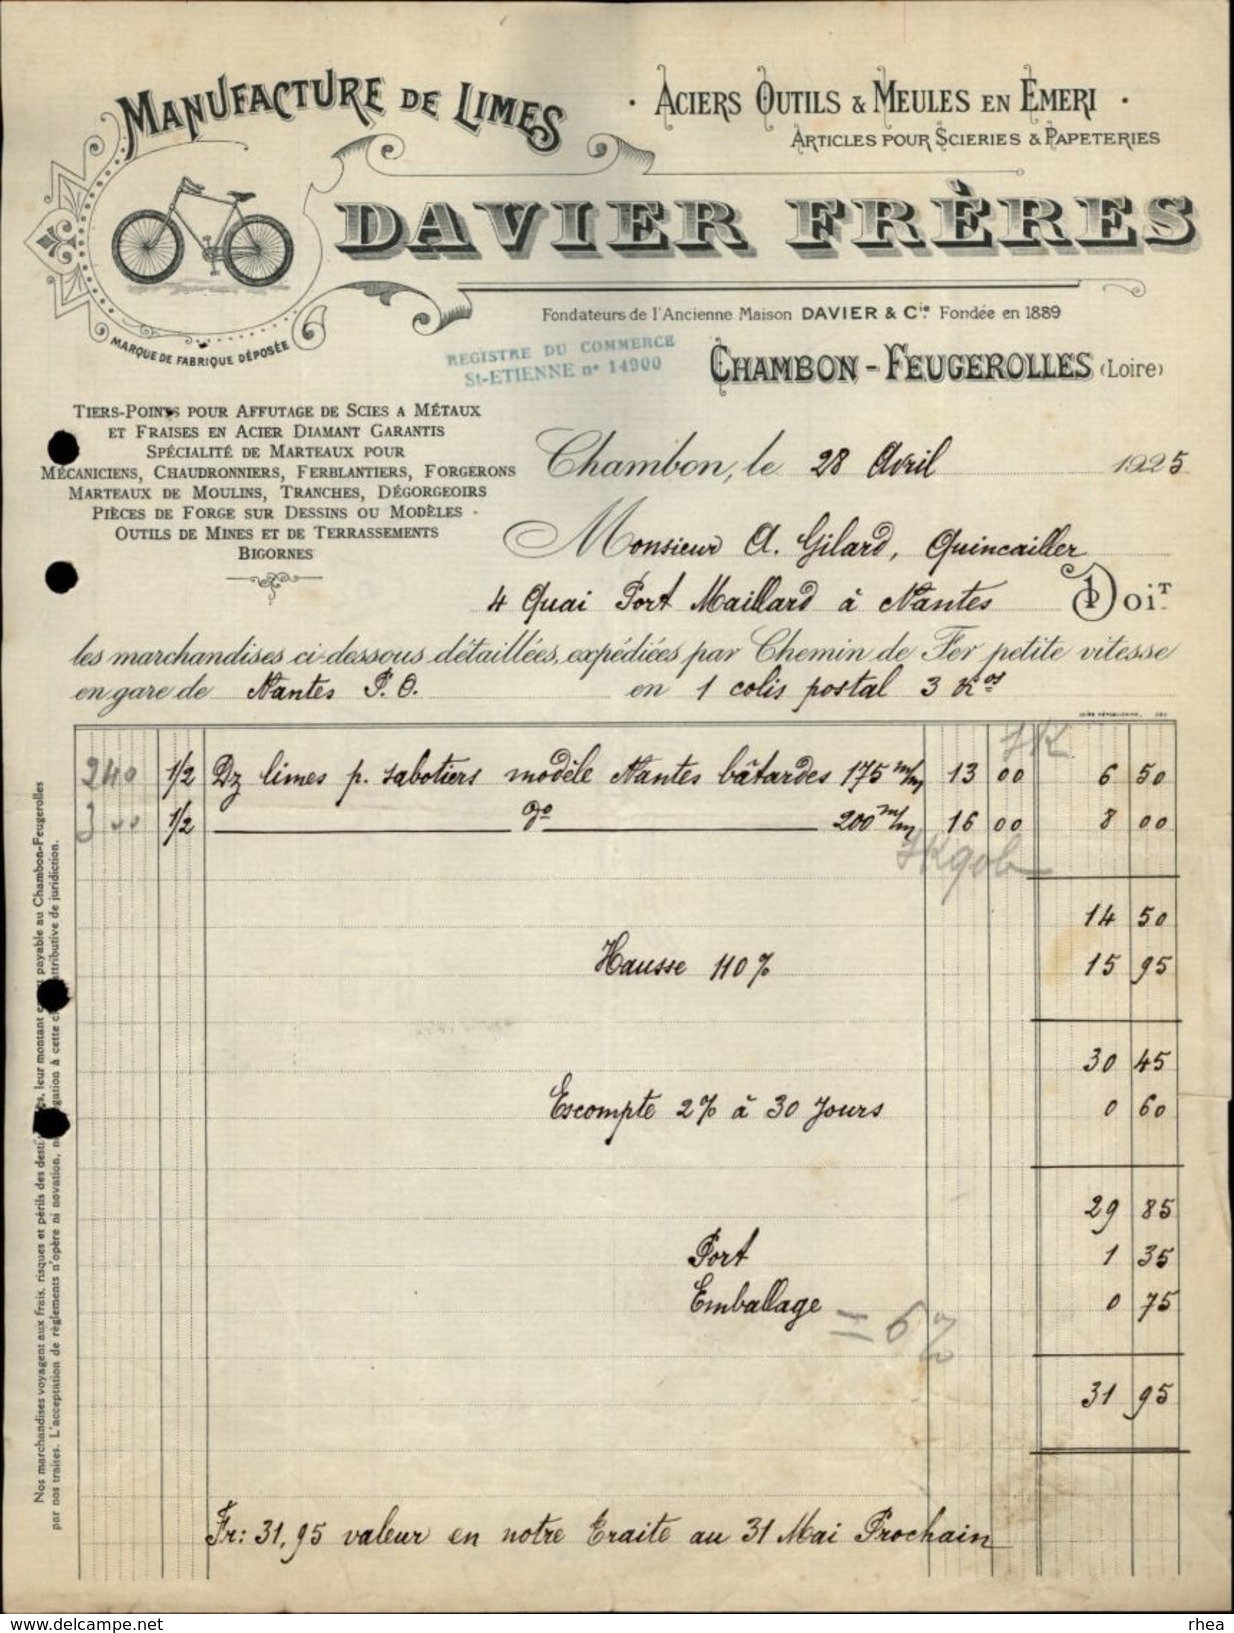 MANUFACTURE DE LIMES
· ACIERS OUTILS & MEULES EN EMERI ·
ARTICLES POUR SCIERIES & PAPETERIES
DAVIER FRÈRES
MARQUE DE FABRIQUE DÉPOSÉE
Fondateurs de l'Ancienne Maison DAVIER & Cie. Fondée en 1889
REGISTRE DU COMMERCE
St-ETIENNE n° 14900
CHAMBON-FEUGEROLLES (Loire)
TIERS-POINTS POUR AFFUTAGE DE SCIES A MÉTAUX
ET FRAISES EN ACIER DIAMANT GARANTIS
SPÉCIALITÉ DE MARTEAUX POUR
MÉCANICIENS, CHAUDRONNIERS, FERBLANTIERS, FORGERONS
MARTEAUX DE MOULINS, TRANCHES, DÉGORGEOIRS
PIÈCES DE FORGE SUR DESSINS OU MODÈLES
OUTILS DE MINES ET DE TERRASSEMENTS
BIGORNES
Chambon, le 28 Avril 1925
Monsieur A. Gilard, Quincailler
4 Quai Port Maillard à Nantes DOIT
les marchandises ci-dessous détaillées, expédiées par Chemin de Fer petite vitesse
en gare de Nantes P.O. en 1 colis postal 3 Kos
240 1/2 Dz limes p. sabotiers modèle Nantes bâtardes 175 m/m 13 00 6 50
300 1/2 do 200 m/m 16 00 8 00
14 50
Hausse 110 % 15 95
30 45
Escompte 2% à 30 Jours 0 60
29 85
Port 1 35
Emballage 0 75
31 95
Fr: 31,95 valeur en notre Traite au 31 Mai Prochain
Nos marchandises voyagent aux frais, risques et périls des leur montant payable au Chambon-Feugerolles
par nos traites. L'acceptation de règlements n'opère ni novation, ni à cette attributive de juridiction.
delcampe.net
rhea